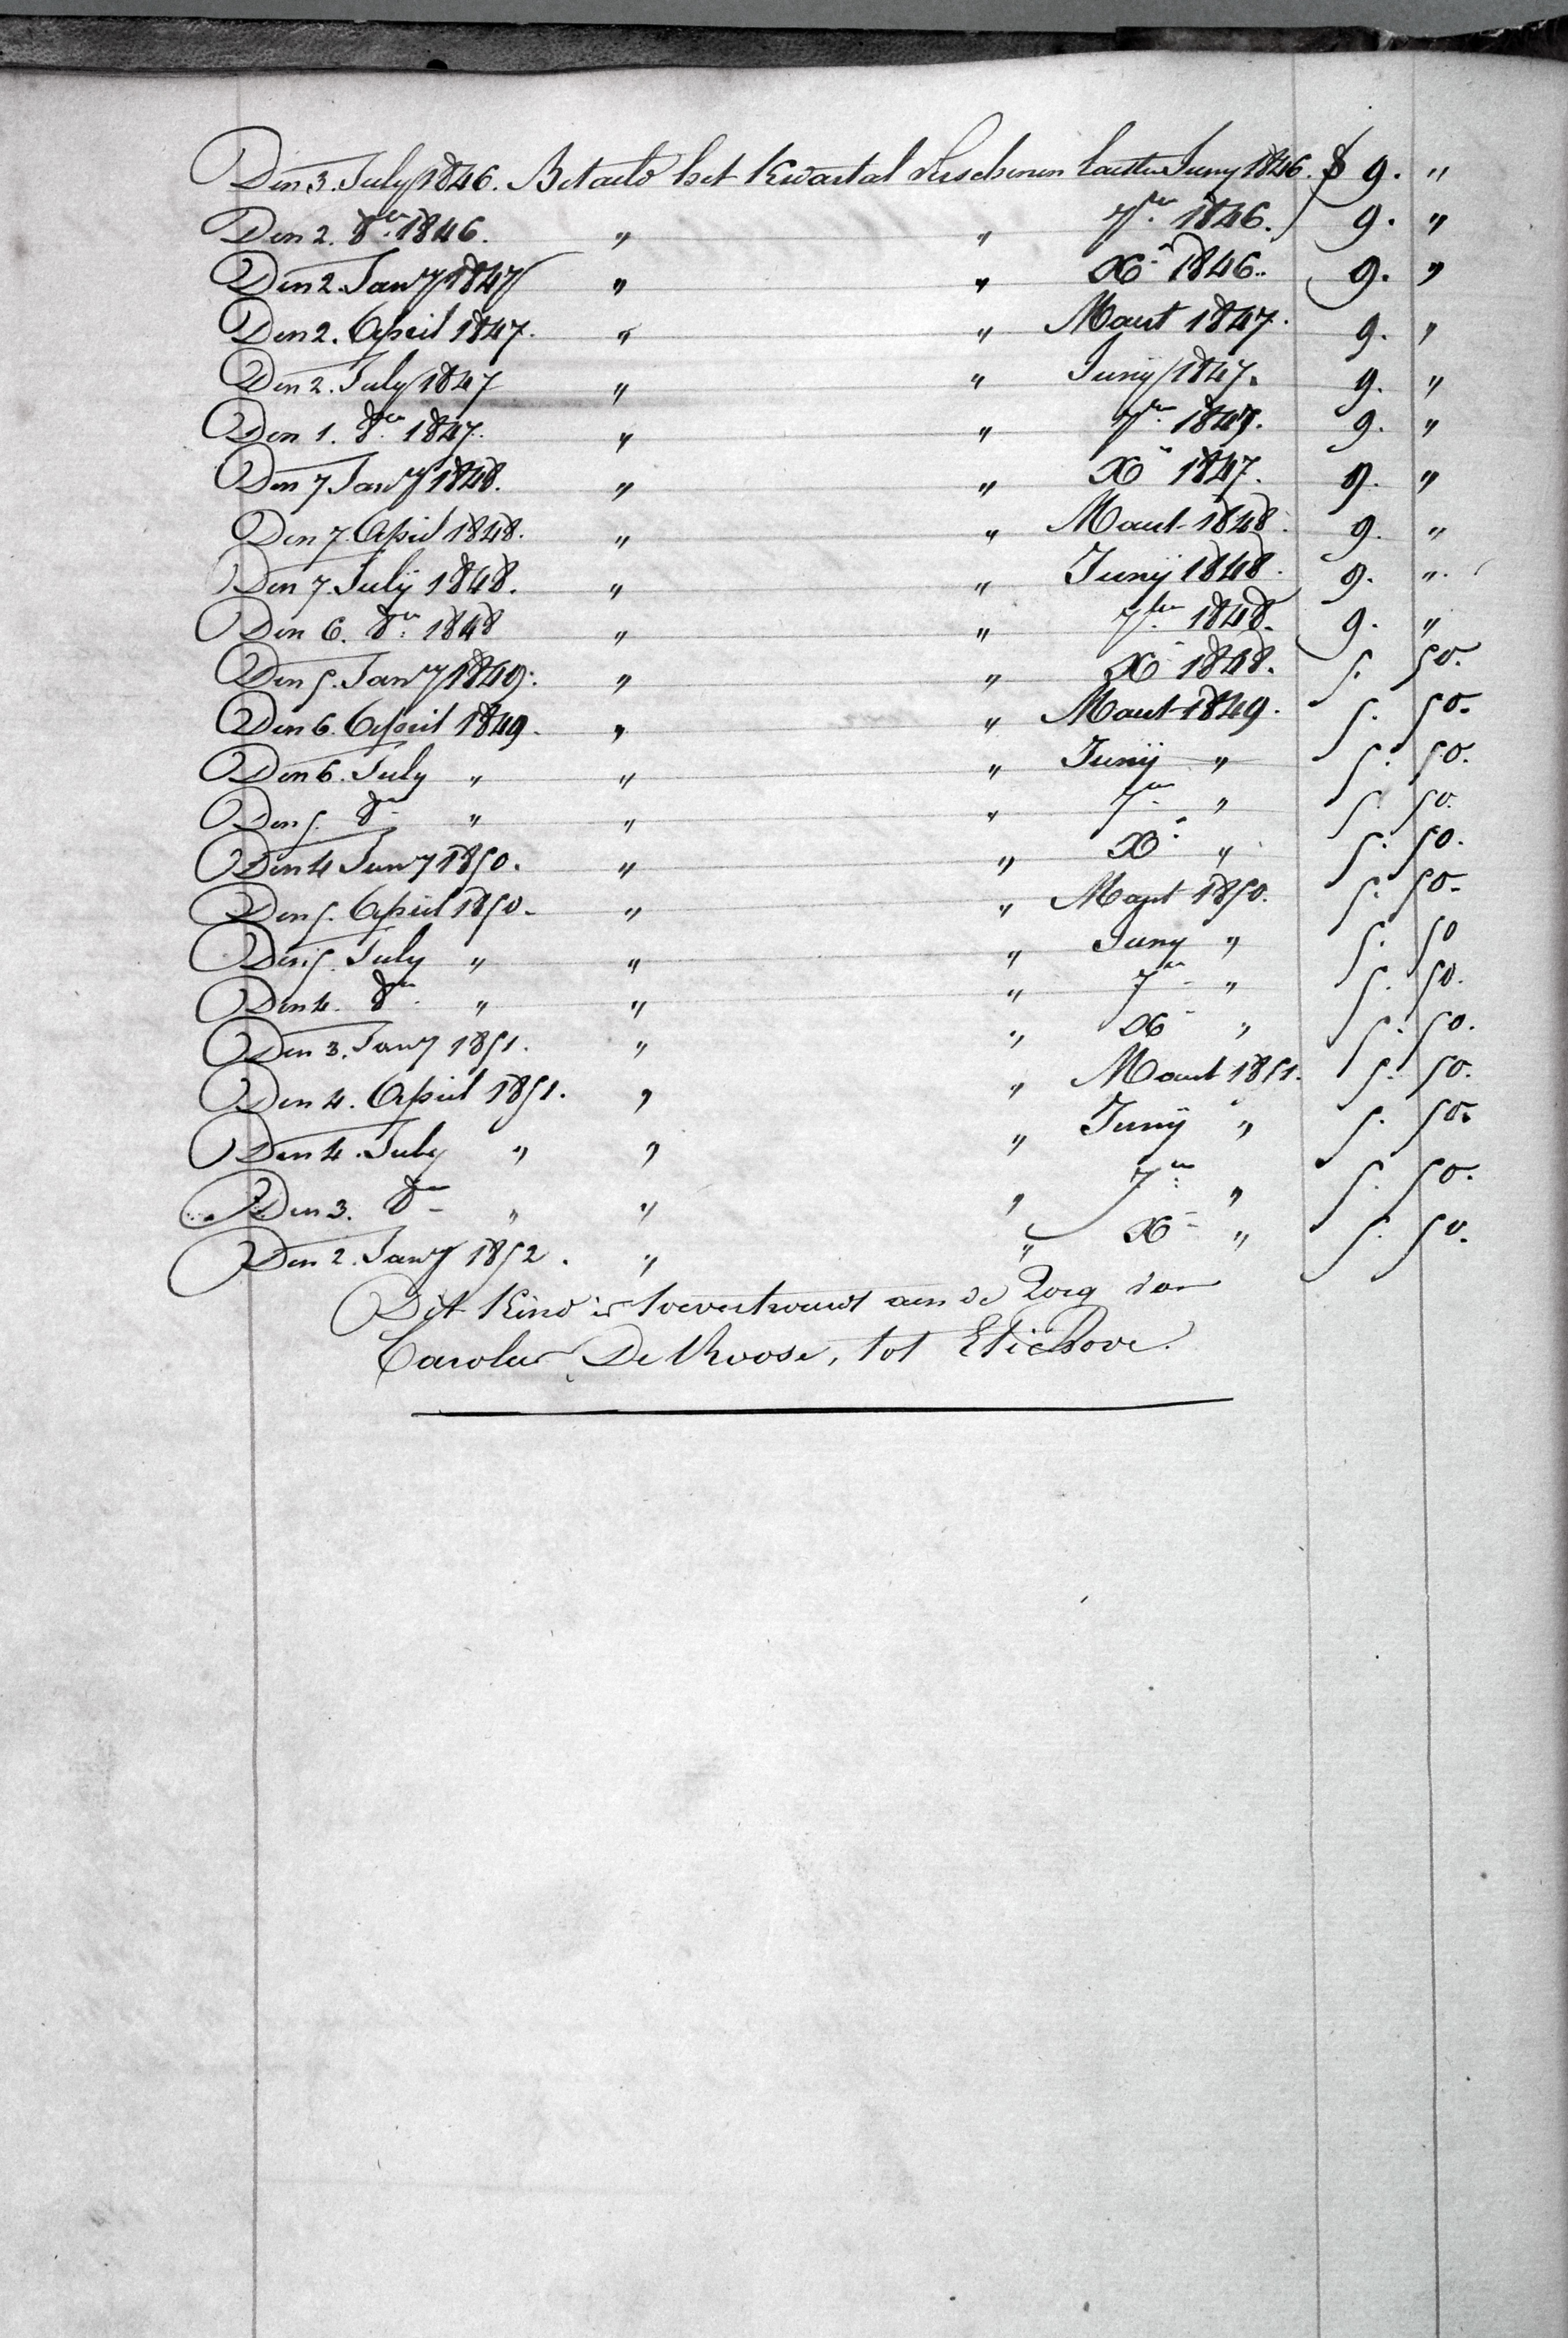 Den 3. July 1846. Betaeld het Kwartal Verschenen laetsten Juny 1846. ₣ 9. "
Den 2. 8er 1846. " " 7ber 1846. 9. "
Den 2. Jany 1847 " " Xr 1846. 9. "
Den 2. April 1847. " " Maert 1847. 9. "
Den 2. July 1847 " " Juny 1847. 9. "
Den 1. 8er 1847. " " 7ber 1847. 9. "
Den 7 Jany 1848. " " Xr 1847. 9. "
Den 7. April 1848. " " Maert 1848. 9. "
Den 7. Julÿ 1848. " " Junÿ 1848. 9. "
Den 6. 8er 1848 " " 7ber 1848. 9. "
Den 5. Jany 1849. " " Xr 1848. 5. 50.
Den 6. April 1849. " " Maert 1849. 5. 50.
Den 6. July " " " Junÿ " 5. 50.
Den 5. 8er " " " 7er " 5. 50.
Den 4 Jany 1850. " " Xr " 5. 50.
Den 5. April 1850. " " Maert 1850. 5. 50.
Den 5. July " " " Juny " 5. 50
Den 4. 8er " " " 7er " 5. 50.
Den 3. Jany 1851. " " Xr " 5. 50.
Den 4. April 1851. " " Maert 1851. 5. 50.
Den 4. July " " " Junÿ " 5. 50.
Den 3. 8er " " " 7er " 5. 50.
Den 2. Jany 1852. " " Xr " 5. 50.
Dit Kind is toevertrouwt aen de Zorg van
Carolus De Vroose, tot Etichove.